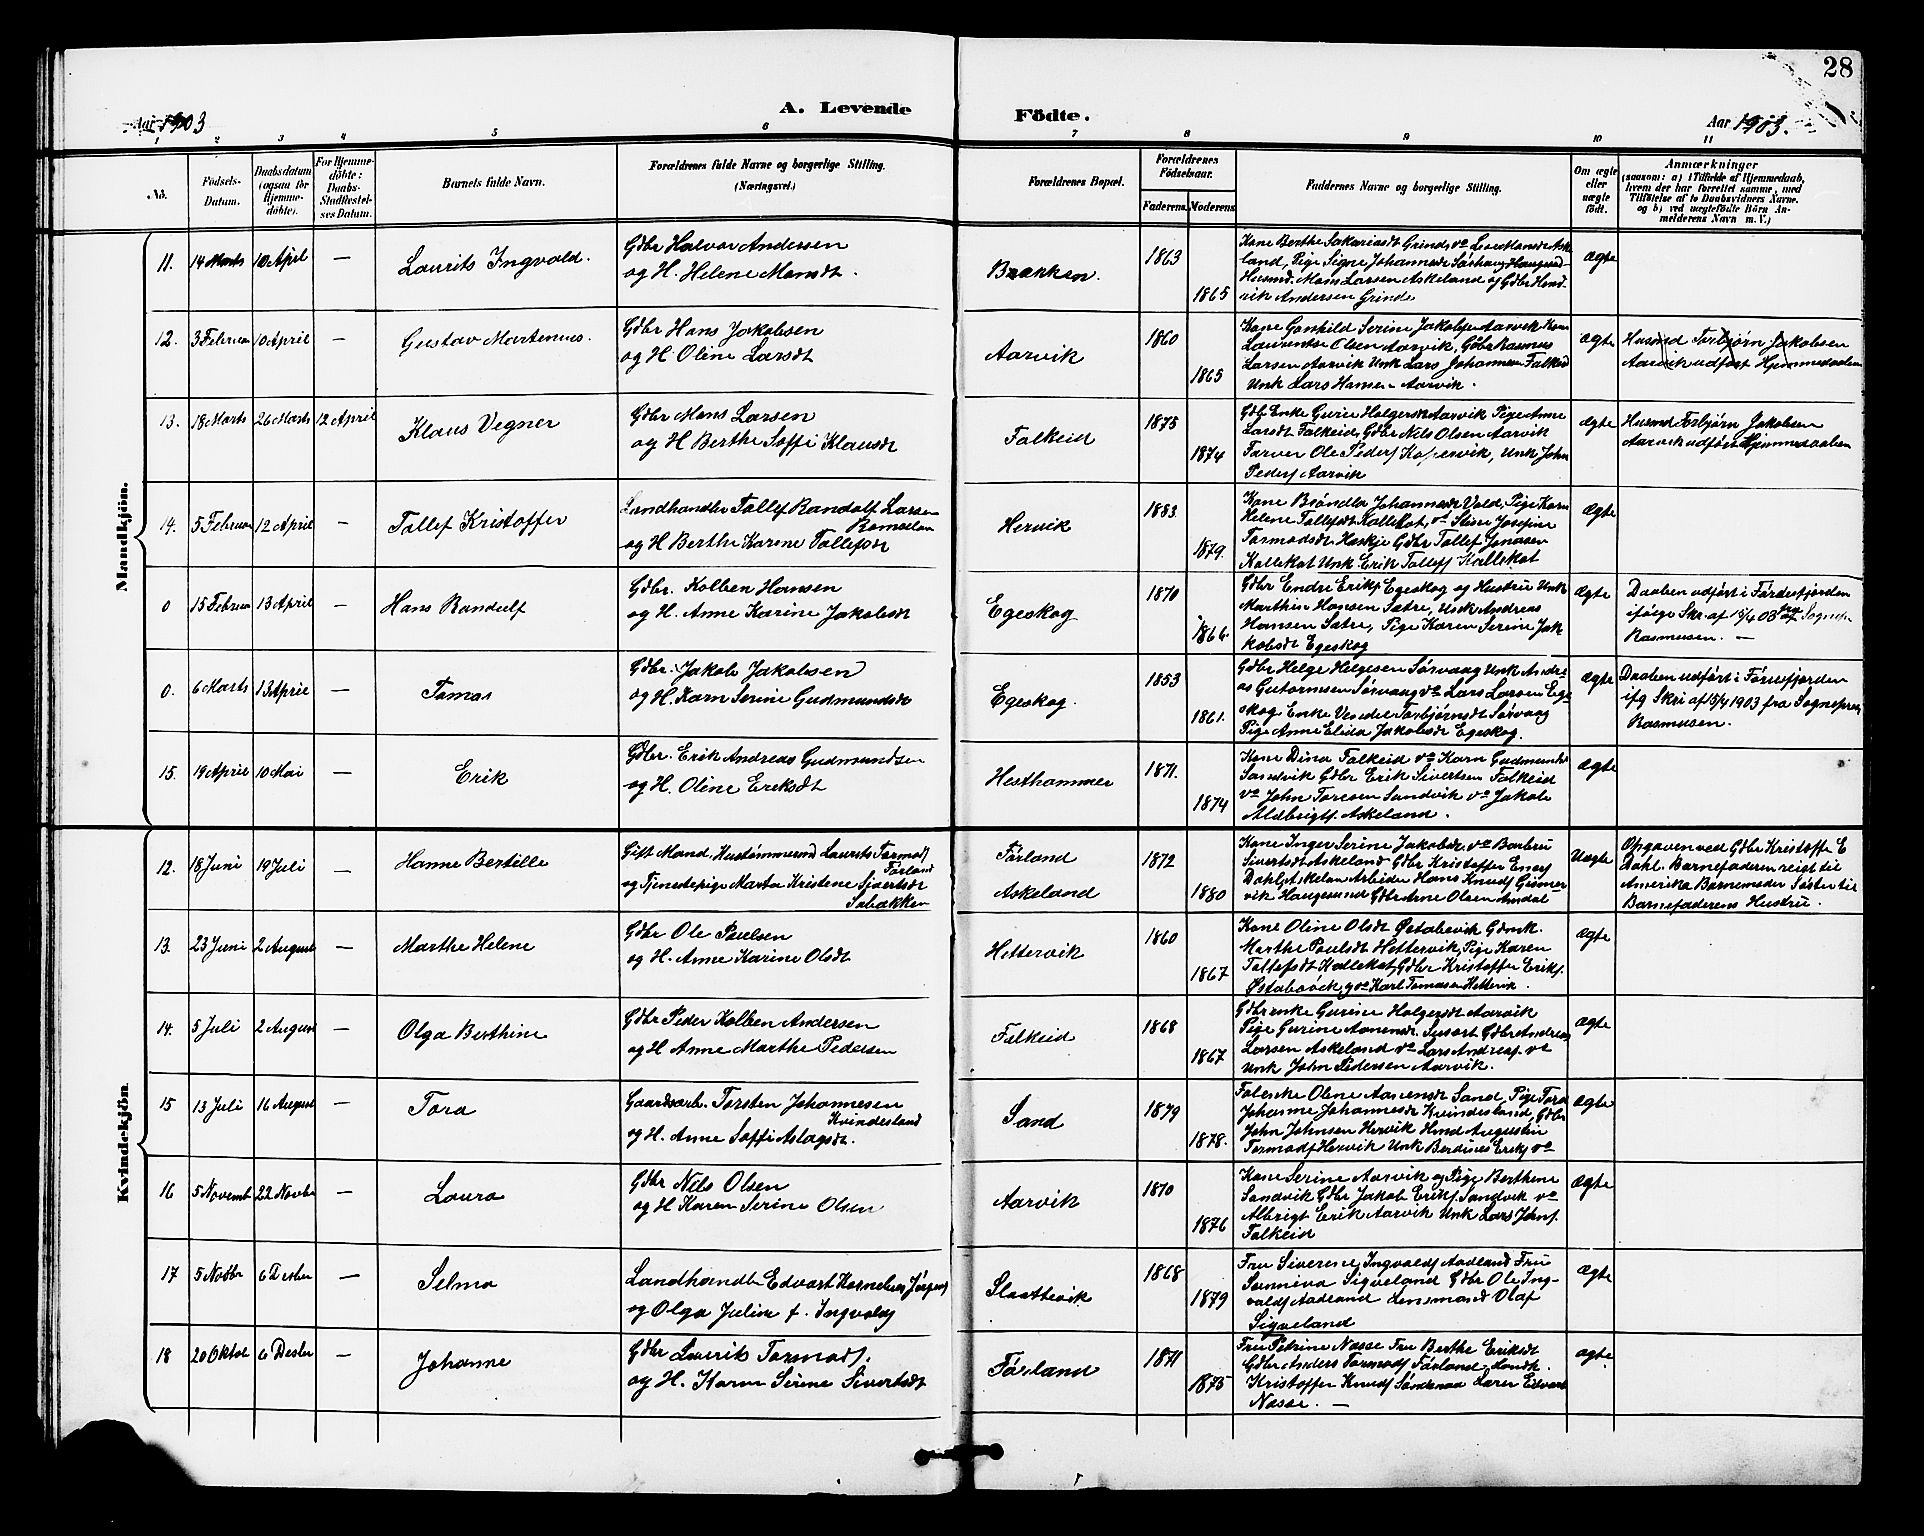 28
Aar 1903
A. Levende
Födte.
Aar 1903.
1 2 3 4 5 6 7 8 9 10 11
No.
Födsels-Datum.
Daabsdatum (ogsaa for Hjemme-döbte).
For Hjemme-döbte: Daabs-Stadfæstel-ses Datum.
Barnets fulde Navn.
Forældrenes fulde Navne og borgerlige Stilling.
(Næringsvei.)
Forældrenes Bopæl.
Forældrenes Födselsaar.
Faderens. Moderens.
Faddernes Navne og borgerlige Stilling.
Om ægte eller uægte födt.
Anmærkninger
(saasom: a) i Tilfælde af Hjemmedaab,
hvem der har forrettet samme, med
Tilföielse af to Daabsvidners Navne.
og b) ved uægtefödte Börn An-
melderens Navn m. V.)
Mandkjön.
11. 14 Marts 10 April — Laurits Ingvald.
Gdbr Halvor Andersen
og H. Helene Monsdt.
Brækken. 1863 1865
Kone Berthe Sakariasdt Grinde, Lars Monsdt Ask-
land, Pige Signe Johannesdt Sørhaug Haugesund
Husmd. Mons Larsen Askeland og Gdbr Hend-
rik Andersen Grinde
ægte
12. 3 Februar 10 April — Gustav Martenus.
Gdbr Hans Jakobsen
og H. Oline Larsdt
Aarvik 1860 1865
Kone Gonhild Serine Jakobsen Aarvik Kone
Laurentse Olsen Aarvik, Gdbr Rasmus
Larsen Aarvik Unk Lars Johannesen Falkeid
Unk Lars Hansen Aarvik.
ægte
Husmd Torbjørn Jakobsen
Aarvik udført Hjemmedaaben
13. 18 Marts 26 Marts 12 April Klaus Vegner
Gdbr Mons Larsen
og H Berthe Soffi Klausdt
Falkeid 1875 1874
Gdb Enke Gurie Holgersdt Aarvik Pige Anne
Larsdt Falkeid, Gdbr Nils Olsen Aarvik
Farver Ole Peders Kopervik, Unk John
Peders Aarvik
ægte
Husmd Torbjørn Jakobsen
Aarvik udført Hjemmedaaben
14. 5 Februar 12 April — Tollef Kristoffer
Landhandler Tollef Randolf Larsen
og H Berthe Karene Tollefsdt
Hervik 1883 1879.
Kone Brøndla Johannesdt Vold, Pige Karn
Helene Tollefsdt Kallekot, Stine Josefine
Tormodsdt Haskje Gdbr Tollef Jonasen
Kallekot Unk Erik Tollefs Kallekot
ægte
0 15 Februar 13 April — Hans Randulf
Gdbr. Kolben Hansen
og H. Anne Karine Jakobsdt
Egeskog 1870 1866.
Gdbr Endre Eriks Egeskog og Hustru Unk
Marthin Hansen Sætre, Unk Andreas
Hansen Sætre, Pige Karen Serine Jak-
kobsdt Egeskog
Ægte
Daaben udført i Førdesfjorden
ifølge Skr. af 15/4 03 fra Sognepr
Rasmusen. —
0. 6 Marts 13 April — Tomas
Gdbr. Jakob Jakobsen
og H. Karn Serine Gudmundsdt
Egeskog. 1853 1861.
Gdbr Helge Helgesen Sørvaag Unk Andre-
as Gutormsen Sørvaag Lars Larsen Ege-
skog Enke Vendel Torbjørnsdt Sørvaag
Pige Anne Elida Jakobsdt Egeskog.
Ægte
Daaben udført i Førresfjorden
ifg Skri af 15/4 1903 fra Sognepres
Rasmusen.
15. 19 April 10 Mai — Erik
Gdbr. Erik Andreas Gudmundsen
og H. Oline Eriksdt
Hesthammer 1871. 1874
Kone Dina Falkeid Karn Gudmunds
Sandvik Gdbr Erik Sivertsen Falkeid
John Toresen Sandvik Jakob
Aldbrigts Askeland.
Ægte
Kvindekjön.
12. 18 Juni 19 Juli — Hanne Bertille
Gift Mand, Hustømmermd Laurits Tormods Førland
og Tjenestepige Marta Kristene Sivertsdt
Søbækken
Førland
Askeland
1872 1880
Kone Inger Serine Jakobsdt. Barbru
Sivertsdt Askeland Gdbr Kristoffer Eners
Dahl, Askelan Arbeider Hans Knuds Gismer-
vik Haugesund Gdbr Arne Olsen Amdal
Uægte
Opgaven ved Gdbr Kristoffer E
Dahl. Barnefaderen reigt til
Amerika Barnemoder Søster til
Barnefaderens Hustru.
13. 23 Juni 2 August — Marthe Helene
Gdbr Ole Paulsen
og H. Anne Karine Olsdt
Hettervik 1860 1867
Kone Oline Olsdt Østabøvik Gdmk.
Marthe Paulsdt Hettervik, Pige Karen
Tollefsdt Kallekot, Gdbr Kristoffer Eriks.
Østabøvik, Karl Tomasen Hettervik.
Ægte
14. 5 Juli 2 August — Olga Berthine
Gdbr Peder Kolben Andersen
og H Anne Marthe Pedersen
Falkeid 1868 1867
Gdbrenke Gurine Holgersdt Aarvik
Pige Gurine Aanensdt. Sysørt Gdbr Andreas
Larsen Askeland Lars Andreas.
Unk John Pedersen Aarvik.
Ægte
15 13 Juli 16 August — Tora
Gaardsarb. Torsten Johannesen
Kvindesland
og H. Anne Soffi Aslagsdt.
Sand 1879 1878.
Olene Aanensdt Sand, Pige Tora
Johanne Johannesdt Kvindesland, Gdbr
John Johnsen Hervik Hmd Augustin
Tormods Hervik Unk Berdines Eriks
Ægte
16 5 Novemb 22 Novbr — Laura
Gdbr Nils Olsen
og H Karen Serine Olsen
Aarvik 1870 1876
Kone Serine Aarvik og Pige Berthine
Sandvik Gdbr Jakob Eriks Sandvik
Albrigt Erik Aarvik Unk Lars Johns.
Falkeid
Ægte
17 5 Novbr 6 Desbr — Selma
Landhandler Edvart Kornelius Jørgens
og Olga Juline f. Ingvalds
Slaattevik 1868 1879
Fru Siverene Ingvalds Aadland Fru
Sunneva Sigveland Gdbr Ole Ing-
valds Aadland Lensmand Olaf
Sigveland
Ægte
18 20 Oktob 6 Desbr — Johanne
Gdbr Laurits Tormods.
og H. Karn Serine Sivertsdt
Førland 1871 1875
Fru Petrine Næsse Fru Berthe Eriksdt
Gdbr Anders Tormods Førland, Landh.
Kristoffer Knuds Søndenaa Lærer Edvart
Næsse. —
ægte.